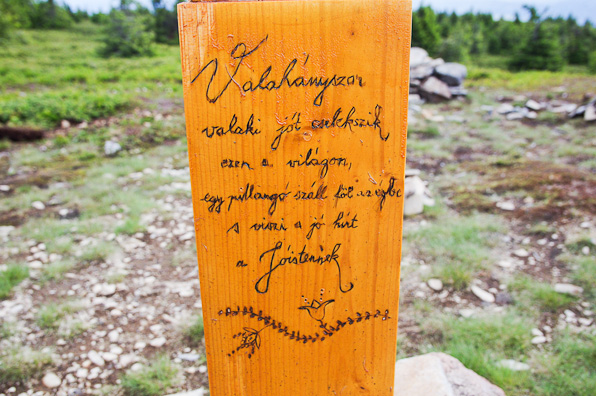 Valahányszor
valaki jót cselekszik,
ezen a világon,
egy pillangó száll föl az égbe
s viszi a jó hírt
a Jóistennek